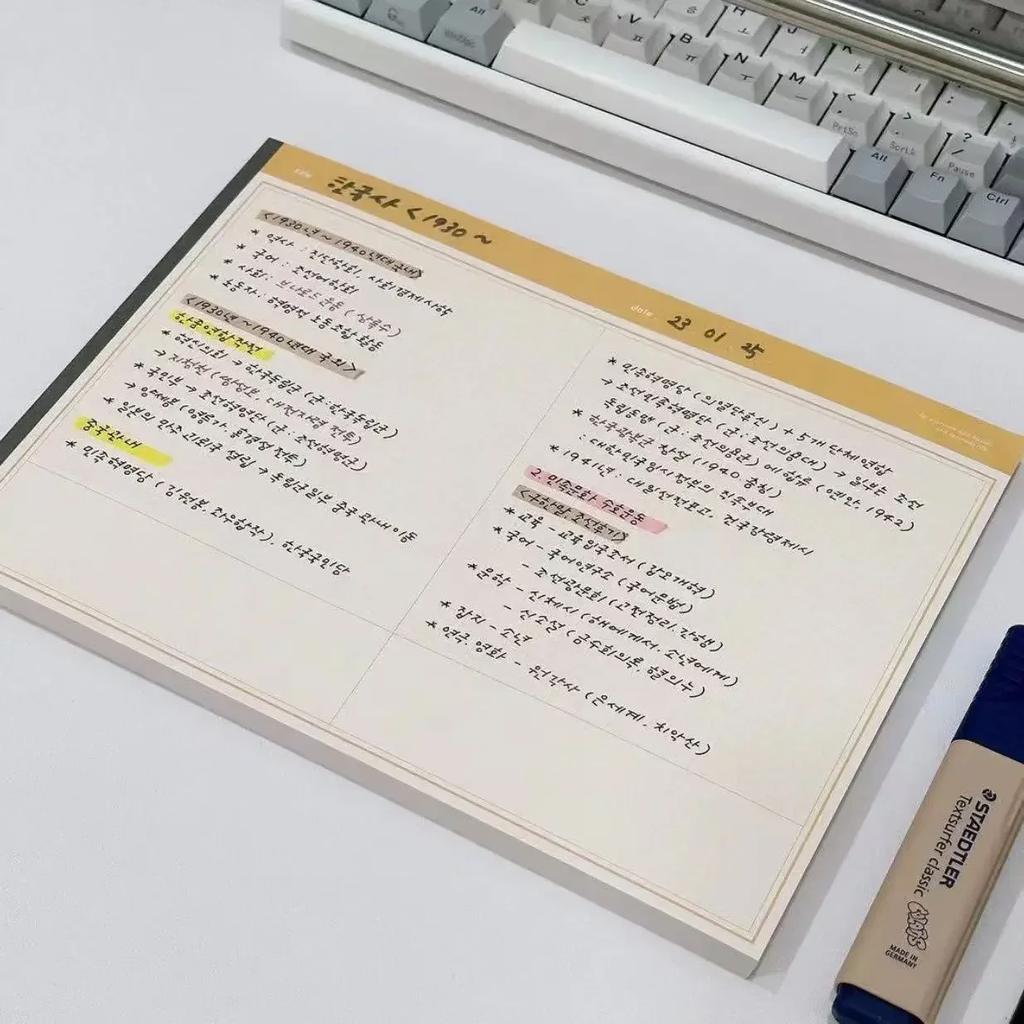 title 한국사 < 1930 ~
date 23 01 25
<1930년 ~ 1940년대 국내>
* 역사 : 진단학회, 사회경제사학
* 국어 : 조선어학회
* 사회 : 브나로드 운동 (상록수)
* 노동자 : 혁명적 노동조합 활동
<1930년 ~ 1940년대 국외>
한중연합작전
* 혁신의회 → 한국독립군 (군:한국독립군)
→ 지청천 (쌍성보, 대전자령 전투)
* 국민부 → 조선혁명당 (군 : 조선혁명군)
→ 양세봉 (영릉가, 흥경성 전투)
* 일본의 만주 괴뢰국 설립 → 독립군 일부 중국 관내 이동
중국 관내
* 민족혁명당 (김원봉, 조소앙 합작), 한국국민당
* 민족혁명당 (의열단 중심) + 5개 단체 연합
→ 조선민족혁명당 (군 : 조선의용대) → 일부는 조선
독립동맹 (군 : 조선의용군) 에 합류 (연안, 1942)
* 한국광복군 창설 (1940 충칭)
: 대한민국임시정부의 직속부대
* 1941년 : 대일선전포고, 건국강령 제시
2. 민족문화 수호운동
<구한말, 조선후기>
* 교육 - 교육입국조서 (갑오개혁)
* 국어 - 국어연구소 (국어문법)
- 조선광문회 (고전정리, 간행)
* 문학 - 신체시 (해에게서, 소년에게)
- 신소설 (금수회의록, 혈의누)
* 잡지 - 소년
* 연극, 영화 - 원각사 (은세계, 치악산)
G
Alt
C
V ㅍ
B ㅠ
N ㅜ
H ㅗ
J ㅓ
K ㅏ
L ㅣ
M ㅡ
< , PrtSc
> . ScrLk
? / Pause
Alt
Fn
Ctrl
STAEDTLER
Textsurfer classic
MADE IN
GERMANY